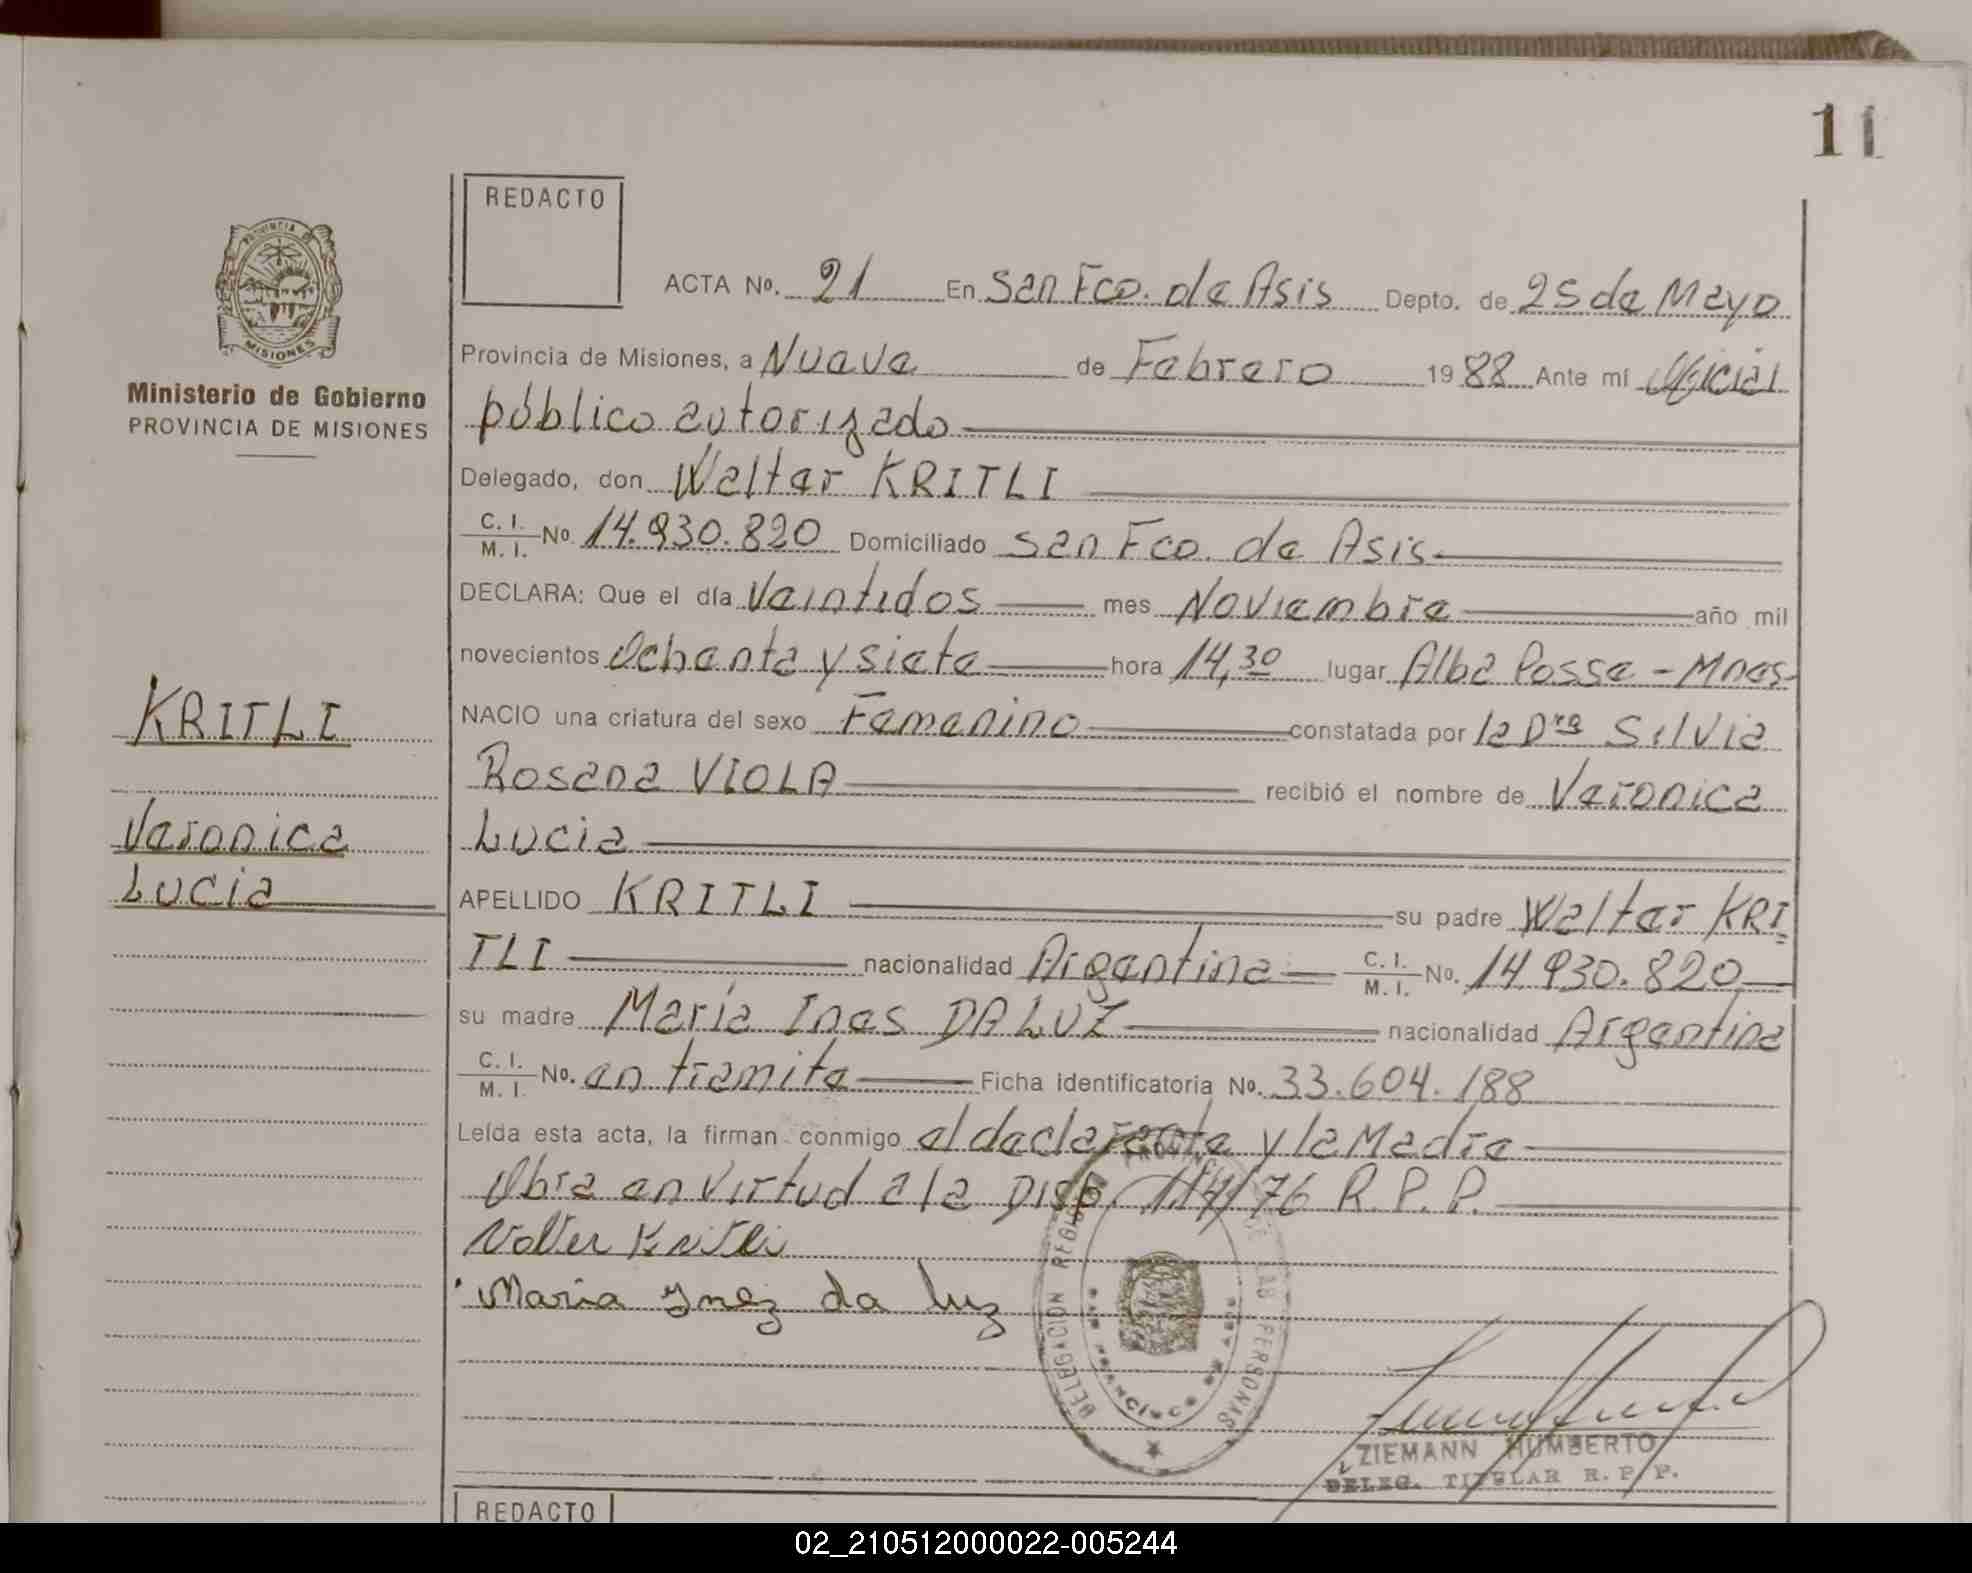 11
REDACTO
PROVINCIA DE
MISIONES
Ministerio de Gobierno
PROVINCIA DE MISIONES
KRITLI
Veronica
Lucia
ACTA No. 21 En San Fco. de Asis Depto. de 25 de Mayo
Provincia de Misiones, a Nueve de Febrero 1988 Ante mí Oficial
público autorizado
Delegado, don Walter KRITLI
C. I. / M. I. No. 14.930.820 Domiciliado San Fco. de Asis
DECLARA: Que el día Veintidos mes Noviembre año mil
novecientos Ochenta y siete hora 14,30 lugar Alba Posse - Mnes-
NACIO una criatura del sexo Femenino constatada por la Dra Silvia
Rosana VIOLA recibió el nombre de Veronica
Lucia
APELLIDO KRITLI su padre Walter KRI
TLI nacionalidad Argentina C. I. / M. I. No. 14.930.820
su madre María Ines DA LUZ nacionalidad Argentina
C. I. / M. I. No. en tramite Ficha identificatoria No. 33.604.188
Leída esta acta, la firman conmigo el declarante y la Madre
Obra en virtud a la Disp. 114/76 R.P.P.
Volter Kritli
Maria Ynez da luz
DELEGACION REGIS PROVIN DE LAS PERSONAS
SAN FRANCISCO DE ASIS
ZIEMANN HUMBERTO
DELEG. TITULAR R. P. P.
REDACTO
02_210512000022-005244